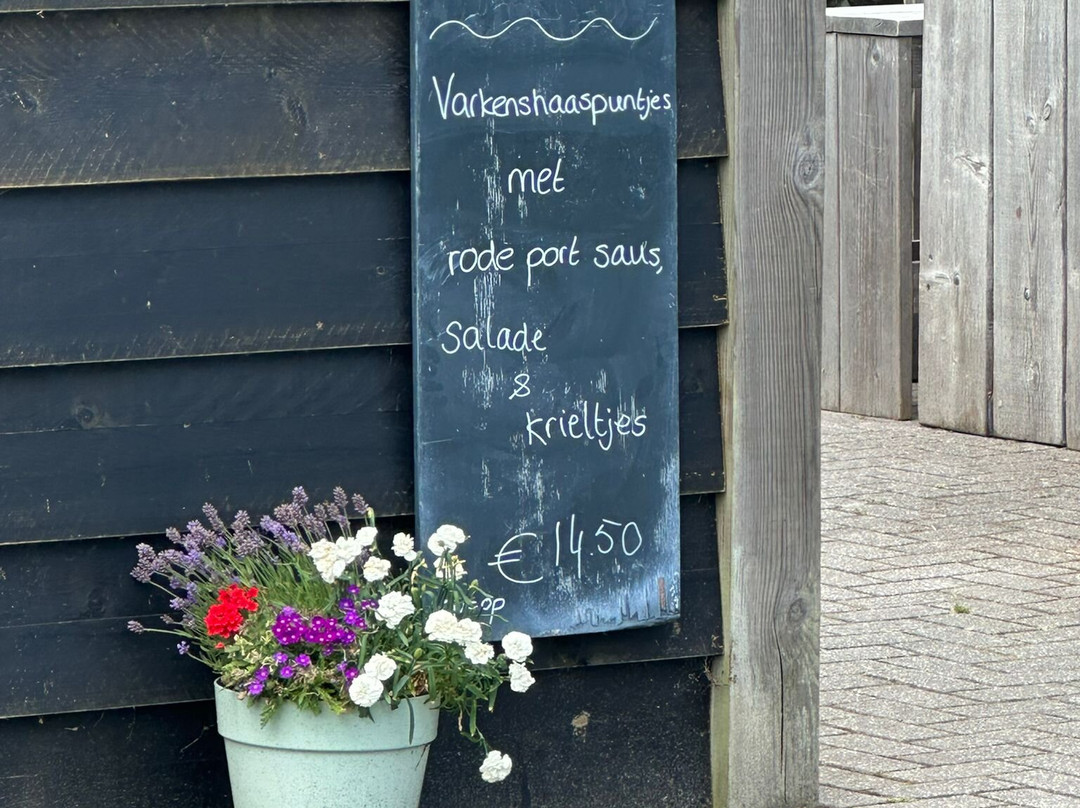 Varkenshaaspuntjes
met
rode port saus,
salade
&
krieltjes
€ 14.50